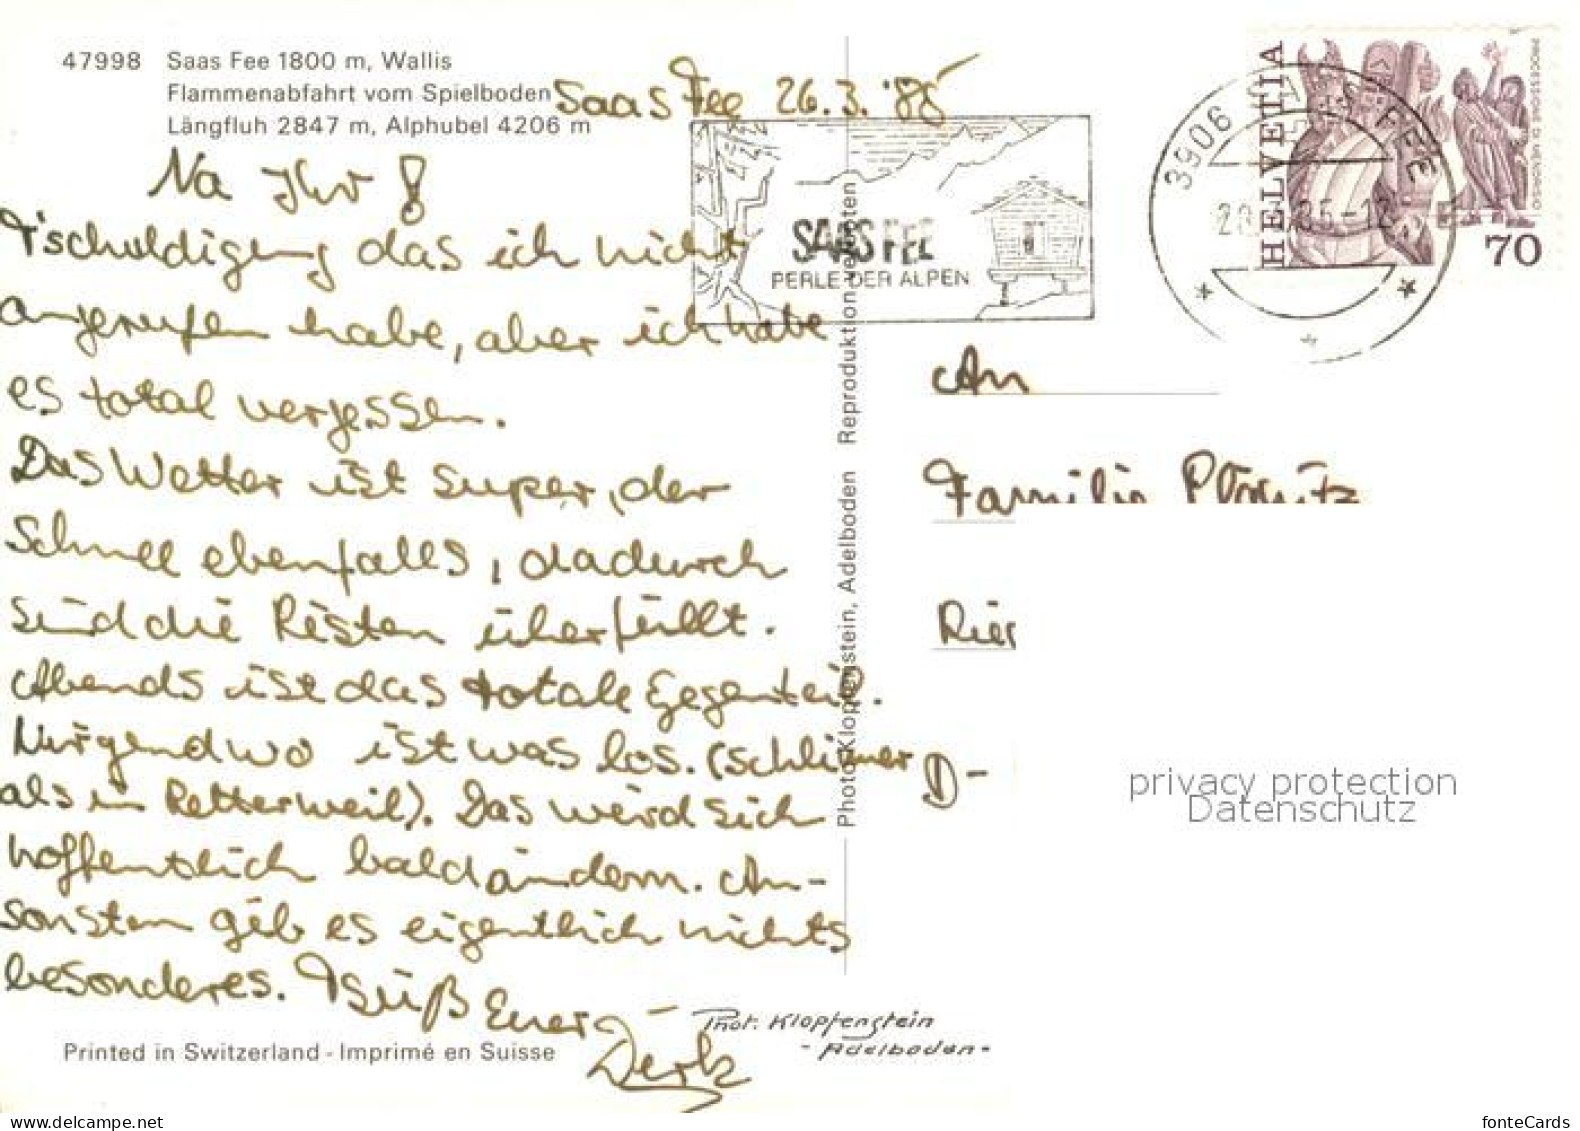 47998 Saas Fee 1800 m, Wallis
Flammenabfahrt vom Spielboden
Längfluh 2847 m, Alphubel 4206 m
Saas Fee 26.3.'85
Na Ihr!
Tschuldigung das ich nicht
angerufen habe, aber ich habe
es total vergessen.
Das Wetter ist super, der
Schnee ebenfalls, dadurch
sind die Pisten überfüllt.
Abends ist das totale Gegenteil.
Nirgendwo ist was los. (schlimmer
als in Retterweil). Das wird sich
hoffentlich bald ändern. An-
sonsten gib es eigentlich nichts
besonderes. Tsüß Euer
Dirk
Printed in Switzerland - Imprimé en Suisse
Phot. Klopfenstein
- Adelboden -
Photo Klopfenstein, Adelboden Reproduktion verboten
SAAS FEE
PERLE DER ALPEN
3906 FEE
HELVETIA
70
An
Familie
D-
privacy protection
Datenschutz
www.delcampe.net
fonteCards